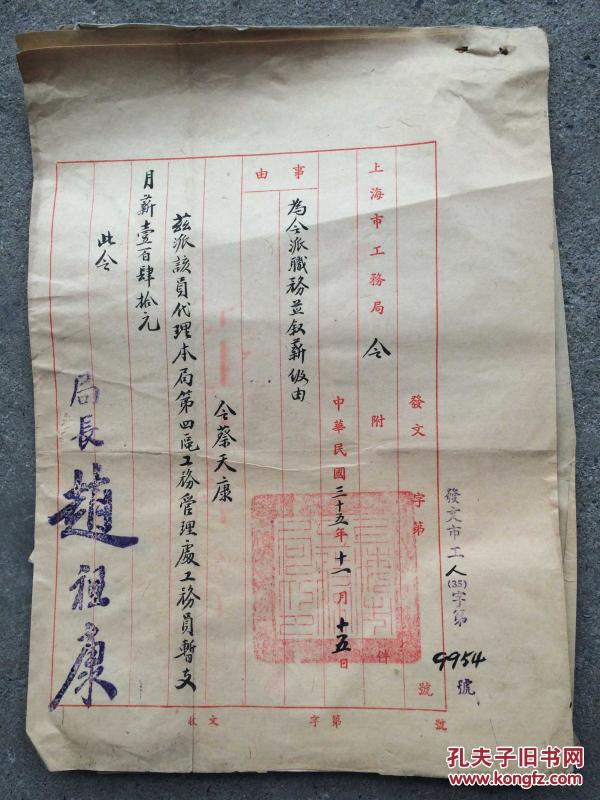 發文市工人(35)字第9954號
發文 字第 號
中華民國三十五年十一月十五日
附 件
上海市工務局 令
事由
為令派職務並敘薪級由
令蔡天康
茲派該員代理本局第四區工務管理處工務員暫支
月薪壹百肆拾元
此令
局長趙祖康
收文 字第 號
孔夫子旧书网
www.kongfz.com